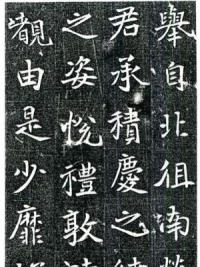 舉自北徂南
君承積慶之
之姿悅禮敦
覩由是少靡